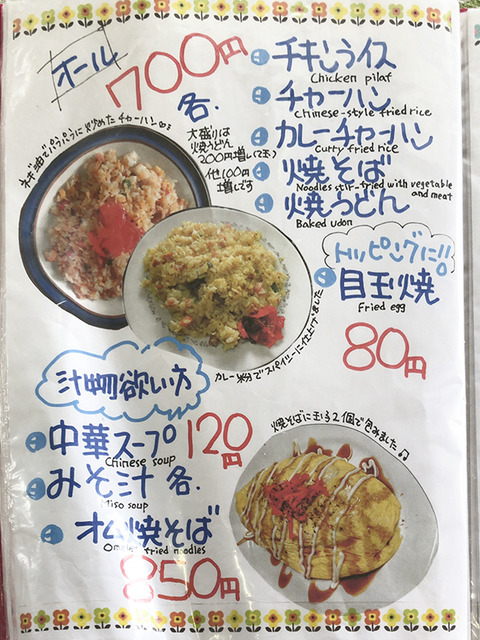 オール
700円
各.
チキンライス
Chicken pilaf
チャーハン
Chinese-style fried rice
カレーチャーハン
Curry fried rice
焼そば
Noodles stir-fried with vegetable
and meat
焼うどん
Baked udon
大盛りは
焼うどん
200円増し(2玉)
他100円
増しです
ネギ油でパラパラに炒めたチャーハン
トッピングに!!
目玉焼
Fried egg
80円
カレー粉でスパイシーに仕上げました
汁物欲い方
中華スープ
Chinese soup
120円
みそ汁 各.
Miso soup
オム焼そば
fried noodles
850円
焼そばに玉子2個で包みました♪